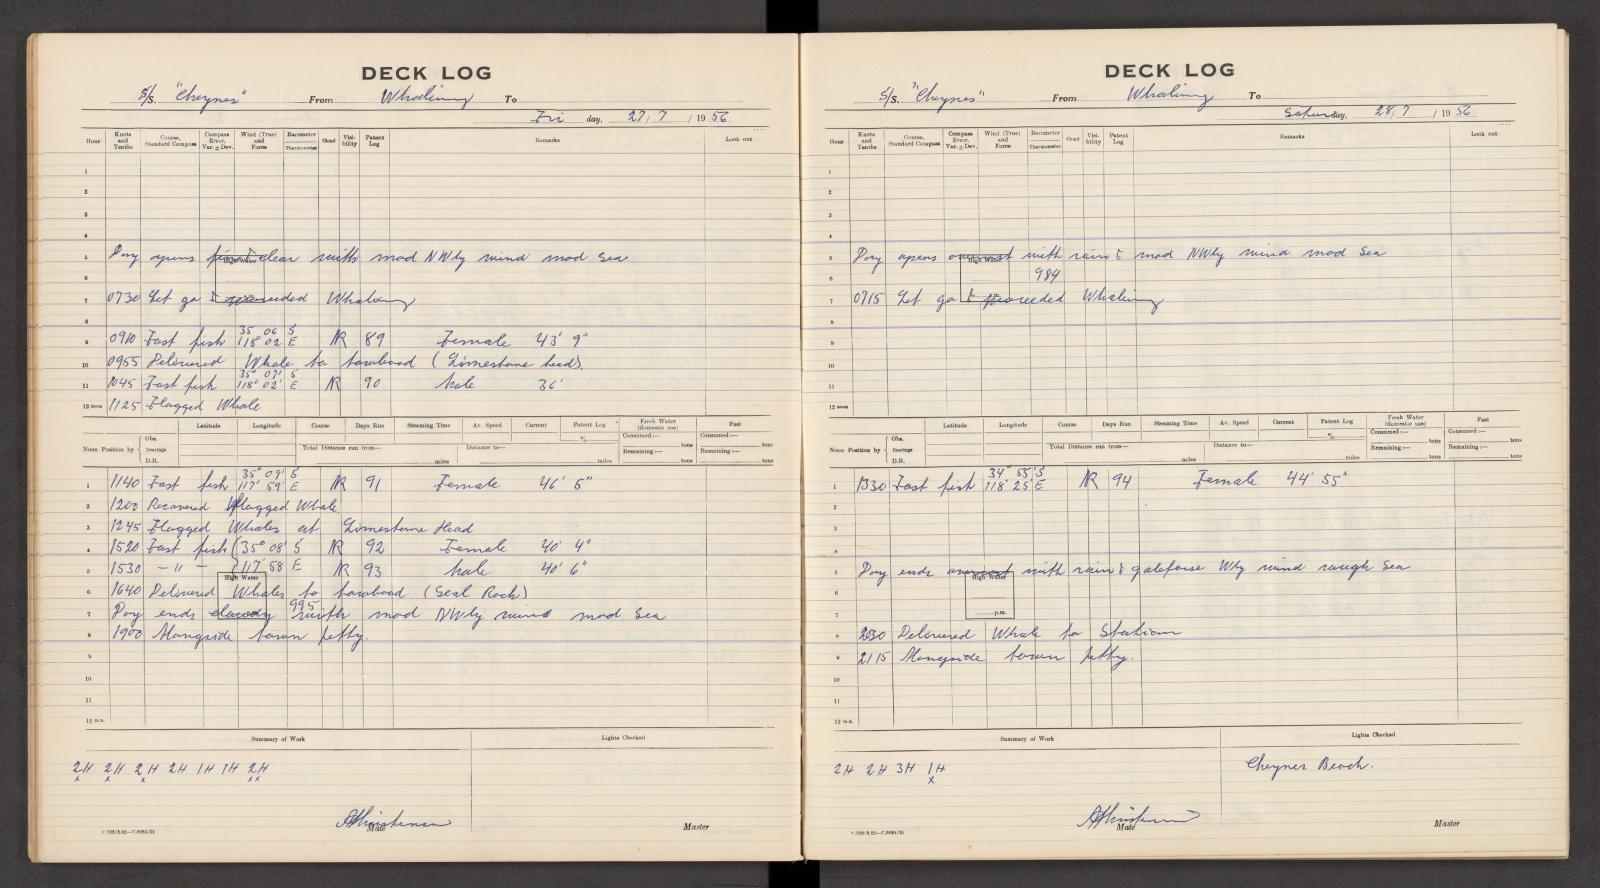 DECK LOG
S/S. "Cheynes" From Whaling To
Fri day, 27/7 / 19 56
Hour Knots and Tenths Course, Standard Compass Compass Error, Var. ± Dev. Wind (True) and Force Barometer Thermometer Cloud Visibility Patent Log Remarks Look out
1
2
3
4
5 Day opens fine & clear with mod NWly wind mod Sea
High Water
6
7 0730 Let go & proceeded Whaling
8
9 0910 Fast fish 35° 06' S 118° 02' E NR 89 Female 43' 9"
10 0955 Delivered Whale to towboad (Limestone head).
11 1045 Fast fish 35° 07' S 118° 02' E NR 90 Male 36'
12 noon 1125 Flagged Whale
Latitude Longitude Course Days Run Steaming Time Av. Speed Current Patent Log % Fresh Water (domestic use) Fuel
Noon Position by Obs. Bearings D.R. Total Distance run from— miles Distance to— miles Consumed:— tons Remaining:— tons Consumed:— tons Remaining:— tons
1 1140 Fast fish 35° 09' S 117° 59' E NR 91 Female 46' 5"
2 1200 Recovered Flagged Whale.
3 1245 Flagged Whales at Limestone Head
4 1520 Fast fish 35° 08' S NR 92 Female 40' 4"
5 1530 — " — 117° 58 E NR 93 Male 40' 6"
High Water
6 1640 Delivered Whales to towboad (Seal Rock)
995
7 Day ends cloudy with mod NWly wind mod Sea
8 1900 Alongside town jetty.
9
10
11
12 m.n.
Summary of Work Lights Checked
2H 2H 2H 2H 1H 1H 2H
x x x x x
AChristensen
Mate Master
DECK LOG
S/S. "Cheynes" From Whaling To
Saturday, 28/7 / 19 56
Hour Knots and Tenths Course, Standard Compass Compass Error, Var. ± Dev. Wind (True) and Force Barometer Thermometer Cloud Visibility Patent Log Remarks Look out
1
2
3
4
5 Day opens overcast with rain & mod NWly wind mod Sea
High Water
6 984
7 0715 Let go & proceeded Whaling
8
9
10
11
12 noon
Latitude Longitude Course Days Run Steaming Time Av. Speed Current Patent Log % Fresh Water (domestic use) Fuel
Noon Position by Obs. Bearings D.R. Total Distance run from— miles Distance to— miles Consumed:— tons Remaining:— tons Consumed:— tons Remaining:— tons
1 1330 Fast fish 34° 55' S 118° 25' E NR 94 Female 44' 55"
2
3
4
5 Day ends overcast with rain & galeforse Wly wind rough Sea
High Water
6
7 p.m.
8 2030 Delivered Whale to Station
9 2115 Alongside town jetty.
10
11
12 m.n.
Summary of Work Lights Checked
2H 2H 3H 1H Cheynes Beach.
x
AChristensen
Mate Master